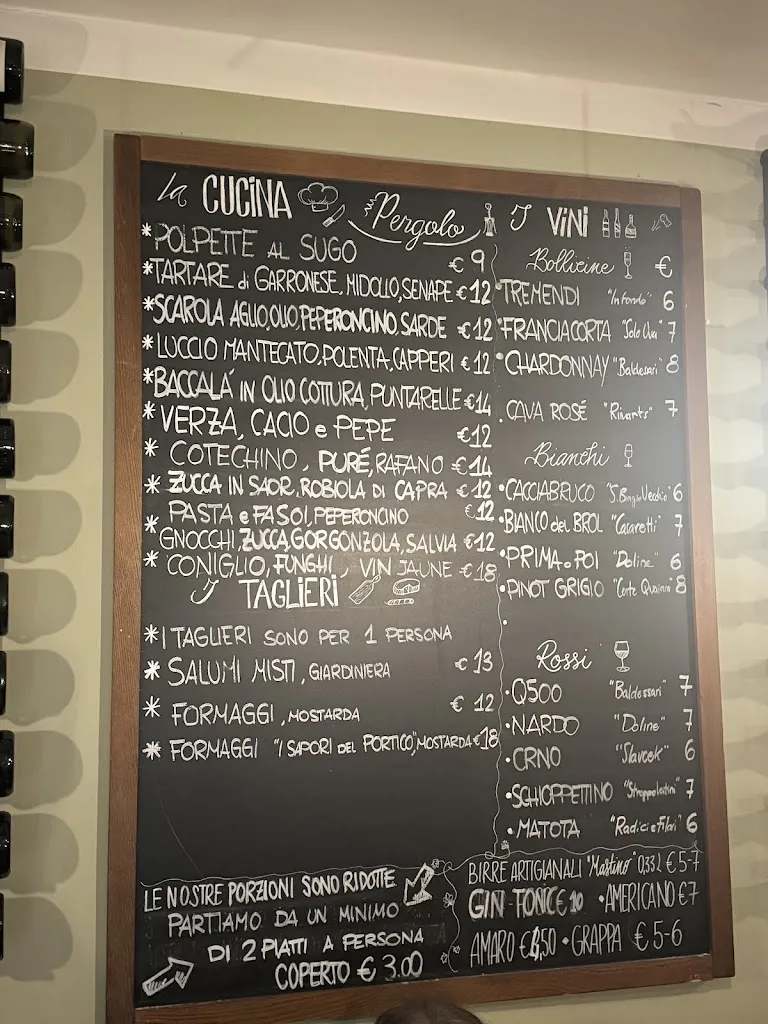 la CUCINA
Pergolo
* POLPETTE AL SUGO € 9
* TARTARE di GARRONESE, MIDOLLO, SENAPE € 12
* SCAROLA AGLIO, OLIO, PEPERONCINO, SARDE € 12
* LUCCIO MANTECATO, POLENTA, CAPPERI € 12
* BACCALÁ IN OLIO COTTURA, PUNTARELLE € 14
* VERZA, CACIO e PEPE € 12
* COTECHINO, PURÉ, RAFANO € 14
* ZUCCA IN SAOR, ROBIOLA DI CAPRA € 12
PASTA e FASOI, PEPERONCINO € 12
* GNOCCHI, ZUCCA, GORGONZOLA, SALVIA € 12
* CONIGLIO, FUNGHI, VIN JAUNE € 18
I TAGLIERI
* I TAGLIERI SONO PER 1 PERSONA
* SALUMI MISTI, GIARDINIERA € 13
* FORMAGGI, MOSTARDA € 12
* FORMAGGI "I SAPORI DEL PORTICO", MOSTARDA € 18
LE NOSTRE PORZIONI SONO RIDOTTE
PARTIAMO DA UN MINIMO
DI 2 PIATTI A PERSONA
COPERTO € 3.00
I VINI
Bollicine €
• TREMENDI "Infondo" 6
• FRANCIACORTA "Solo Uva" 7
• CHARDONNAY "Baldesari" 8
• CAVA ROSÉ "Rimarts" 7
Bianchi
• CACCIABRUCO 6
• BIANCO del BROL "Casaretti" 7
• PRIMA.POI "Doline" 6
• PINOT GRIGIO "Corte Quaiara" 8
•
Rossi
• Q500 "Baldessari" 7
• NARDO "Doline" 7
• CRNO "Slavcek" 6
• SCHIOPPETTINO 7
• MATOTA "Radici e Filari" 6
BIRRE ARTIGIANALI "Mastino" 0,33 L € 5-7
GIN TONIC € 10 • AMERICANO € 7
AMARO € 4,50 • GRAPPA € 5-6